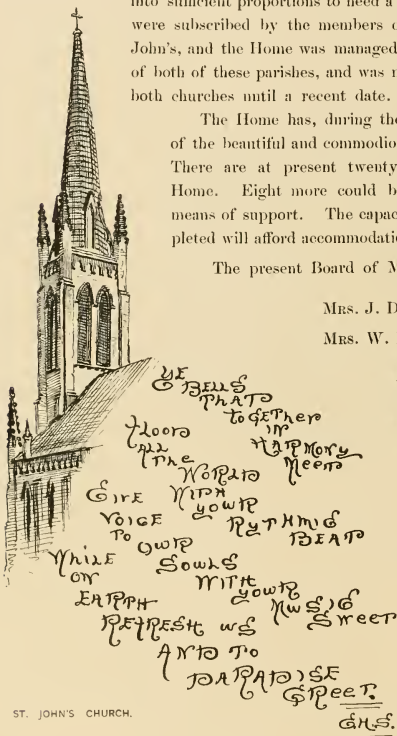 into sufficient proportions to need a
were subscribed by the members o
John's, and the Home was managed
of both of these parishes, and was
both churches until a recent date.
The Home has, during the
of the beautiful and commodio
There are at present twenty
Home. Eight more could b
means of support. The capac
pleted will afford accommodati
The present Board of M
MRS. J. D
MRS. W.
YE
BELLS
THAT
TOGETHER
IN
HARMONY
MEET
FLOOD
ALL
THE
WORLD
WITH
YOUR
RYTHMIC
BEAT
GIVE
VOICE
TO
OUR
SOULS
WITH
YOUR
MUSIC
SWEET
WHILE
ON
EARTH
REFRESH US
AND TO
PARADISE
GREET.
G.H.S.
ST. JOHN'S CHURCH.